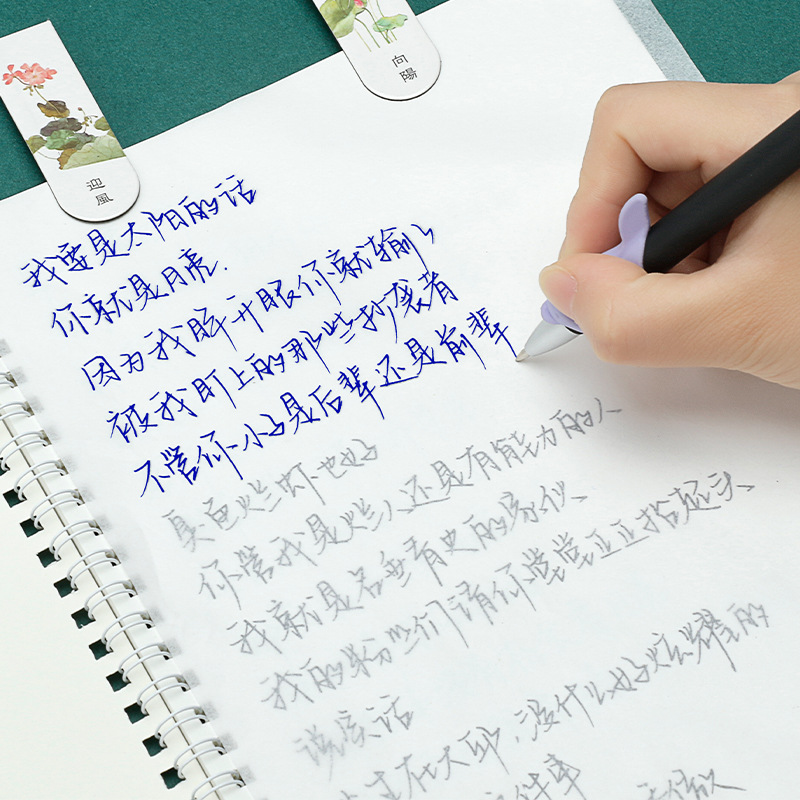 迎風
向陽
我要是太阳的话
你就是月亮.
因为我睁开眼你就输了
被我盯上的那些抄袭者
不管你小子是后辈还是前辈
臭鱼烂虾也好
你管我是烂人还是有能力的人
我就是名垂青史的高仪、
我的粉丝们请你堂堂正正抬起头、
说实话
在大邱,没什么好炫耀的